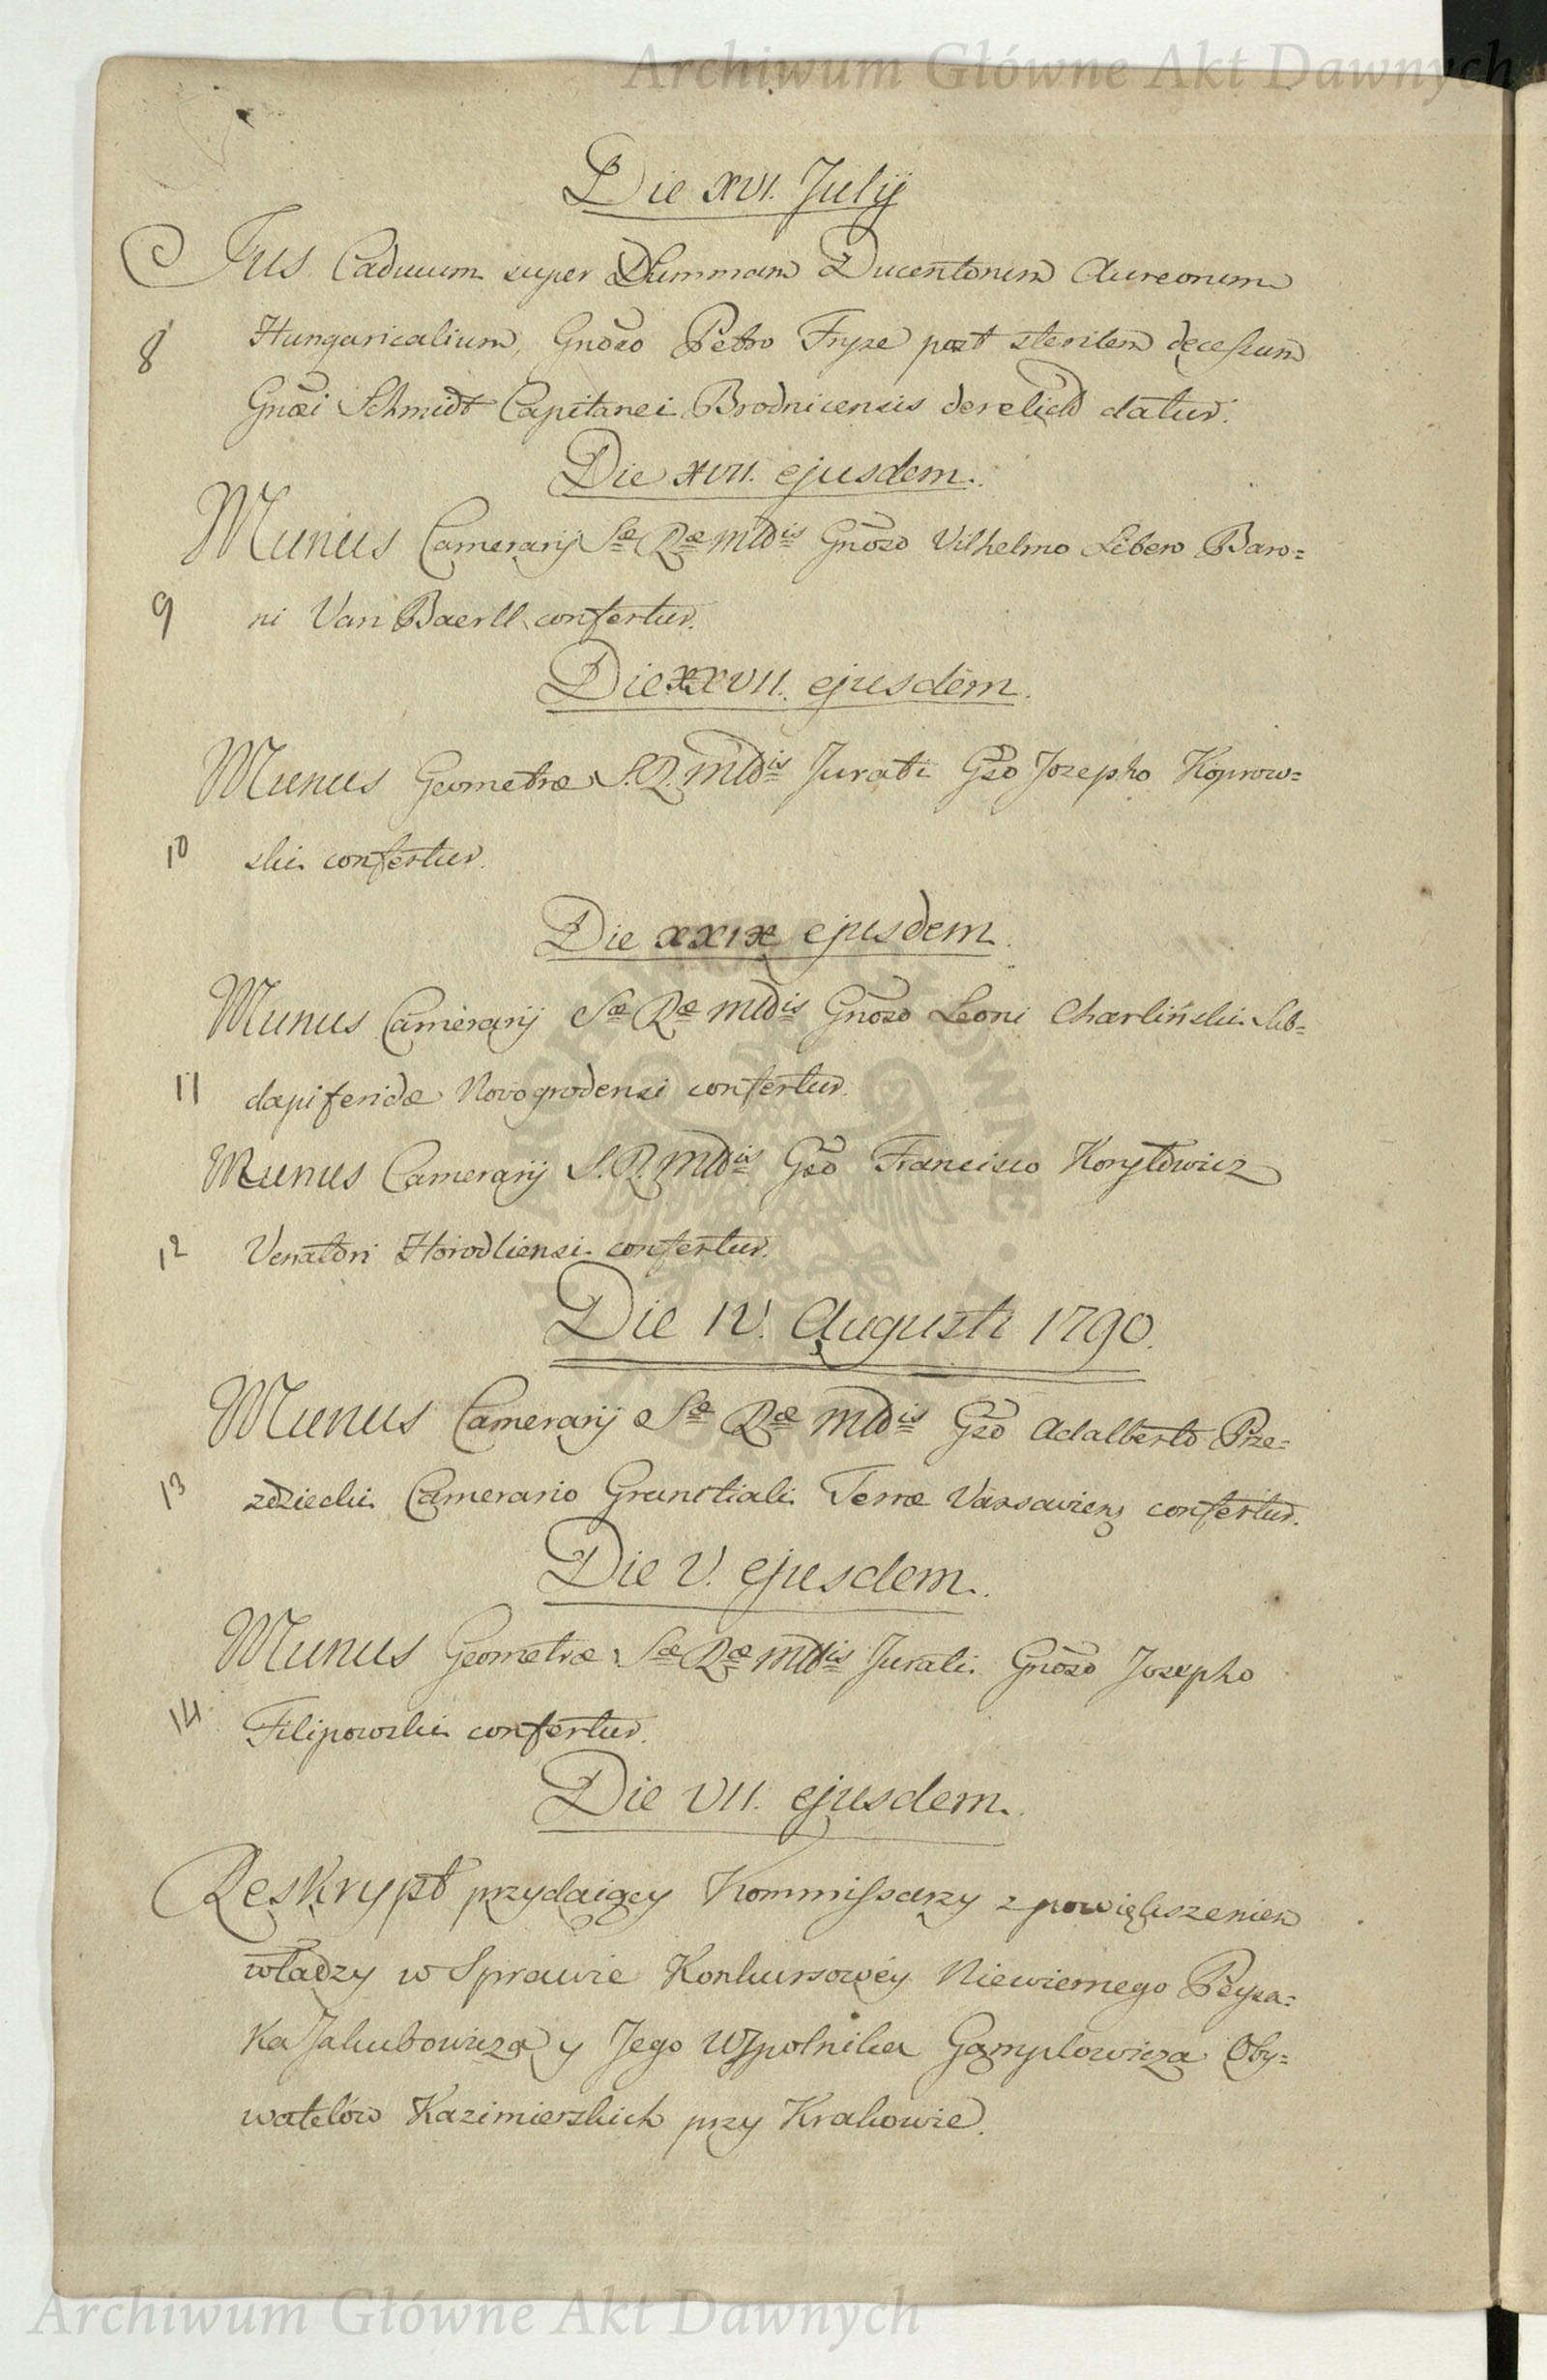 Archiwum Główne Akt Dawnych
Die XVI. Julij
Jus Caducum super Summam Ducentorum Aureorum
8 Hungaricalium, Gnoso Petro Fryze post sterilem decessum
Gnosi Schmidt Capitanei Brodnicensis derelicto datur.
Die XVII. ejusdem.
Munus Camerarij Sae Rae Mttis Gnoso Vilhelmo Libero Baro=
9 ni Van Baerll confertur.
Die XXVII. ejusdem.
Munus Geometrae S. R. Mttis Jurati Gso Josepho Koprow=
10 ski confertur.
Die XXIX ejusdem.
Munus Camerarij Sae Rae Mttis Gnoso Leoni Charliński Sub=
11 dapiferidae Novogrodensi confertur.
Munus Camerarij S. R. Mttis Gso Francisco Korytowicz
12 Venatori Horodliensi confertur.
Die IV. Augusti 1790.
Munus Camerarij Sae Rae Mttis Gso Adalberto Prze=
13 zdziecki Camerario Granitiali Terrae Varsaviens confertur.
Die V. ejusdem.
Munus Geometrae Sae Rae Mttis Jurati Gnoso Josepho
14 Filipowski confertur.
Die VII. ejusdem.
Reskrypt przydaiący Kommissarzy z powiększeniem
władzy w Sprawie Konkursowéy Niewiernego Peysa=
ka Jakubowicza y Jego Wspolnika Gąmplowicza Oby=
watelów Kazimierskich przy Krakowie.
Archiwum Główne Akt Dawnych